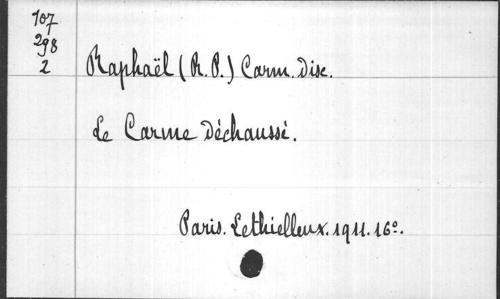 107
298
2
Raphaël (R. P.) Carm. Disc.
Le Carme Déchaussé.
Paris. Lethielleux. 1911. 16º.